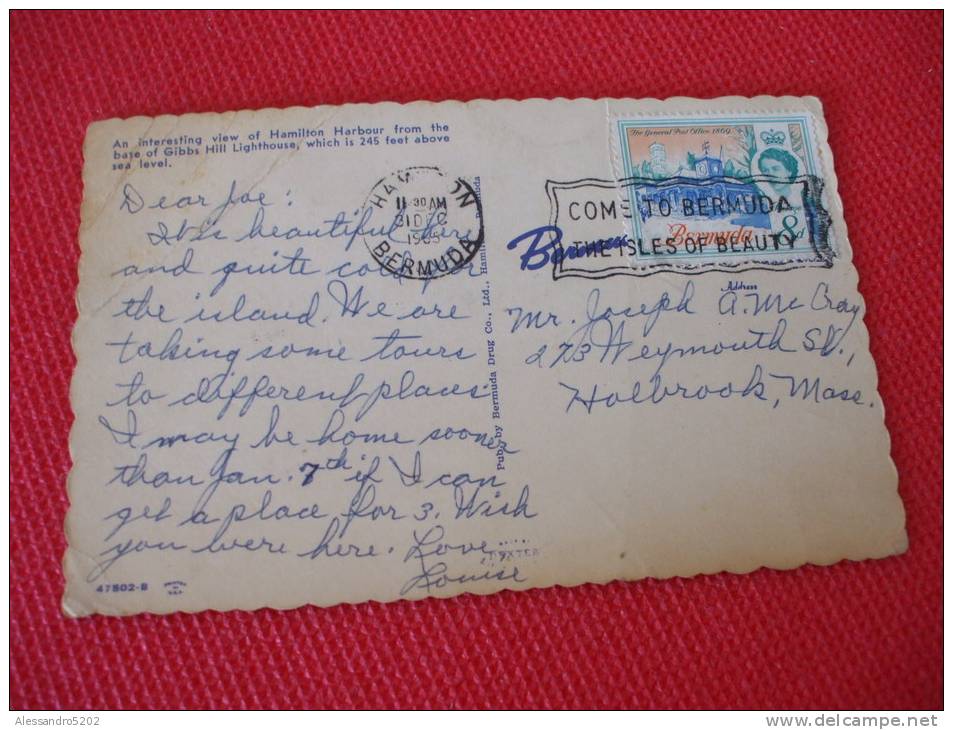 An interesting view of Hamilton Harbour from the
base of Gibbs Hill Lighthouse, which is 245 feet above
sea level.
Dear Joe:
It is beautiful here
and quite cool for
the island. We are
taking some tours
to different places.
I may be home sooner
than Jan. 7th if I can
get a place for 3. Wish
you were here. Love
Louise
47802-B
Pub. by Bermuda Drug Co., Ltd., Hamilton, Bermuda
HAMILTON
11 30 AM
31 DEC
1965
BERMUDA
COME TO BERMUDA
THE ISLES OF BEAUTY
The General Post Office 1869
Bermuda
8d
Bermuda
Address
Mr. Joseph A. McCray
273 Weymouth St.,
Holbrook, Mass.
DEXTER
Alessandro5202
www.delcampe.net